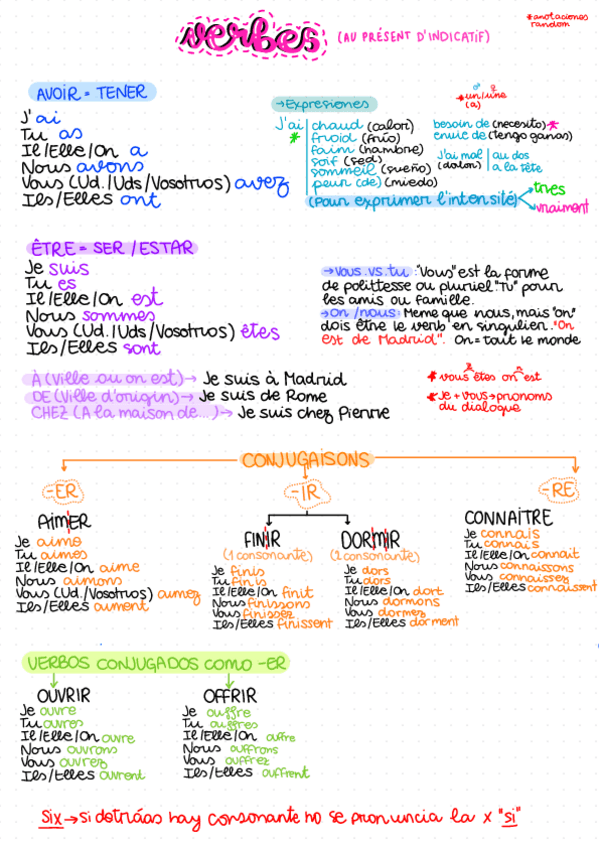 verbes (AU PRÉSENT D'INDICATIF)
*anotaciones
random
AVOIR = TENER
J'ai
Tu as
Il/Elle/On a
Nous avons
Vous (Ud./Uds/Vosotros) avez
Ils/Elles ont
→Expresiones
J'ai chaud (calor)
froid (frío)
faim (hambre)
soif (sed)
sommeil (sueño)
peur (de) (miedo)
(pour exprimer l'intensité) très
vraiment
*un/une
(a)
besoin de (necesito)*
envie de (tengo ganas)
J'ai mal au dos
(dolor) a la tête
ÊTRE = SER / ESTAR
Je suis
Tu es
Il/Elle/On est
Nous sommes
Vous (Ud./Uds/Vosotros) êtes
Ils/Elles sont
→Vous .vs. tu: "Vous" est la forme
de polittesse ou pluriel "Tu" pour
les amis ou famille.
→On /nous: Meme que nous, mais "on"
dois être le verb en singulier. "On
est de Madrid". On = tout le monde
À (Ville ou on est) → Je suis à Madrid
DE (Ville d'origin) → Je suis de Rome
CHEZ (A la maison de...) → Je suis chez Pierre
* vous êtes on est
* Je + vous → pronoms
du dialogue
CONJUGAISONS
-ER
AIMER
Je aime
Tu aimes
Il/Elle/On aime
Nous aimons
Vous (Ud./Vosotros) aimez
Ils/Elles aiment
-IR
FINIR
(1 consonante)
Je finis
Tu finis
Il/Elle/On finit
Nous finissons
Vous finissez
Ils/Elles finissent
DORMIR
(2 consonante)
Je dors
Tu dors
Il/Elle/On dort
Nous dormons
Vous dormez
Ils/Elles dorment
-RE
CONNAÎTRE
Je connais
Tu connais
Il/Elle/On connait
Nous connaissons
Vous connaissez
Ils/Elles connaissent
VERBOS CONJUGADOS COMO -ER
OUVRIR
Je ouvre
Tu ouvres
Il/Elle/On ouvre
Nous ouvrons
Vous ouvrez
Ils/Elles ouvrent
OFFRIR
Je ouffre
Tu ouffres
Il/Elle/On ouffre
Nous ouffrons
Vous ouffrez
Ils/Elles ouffrent
Six → si detráas hay consonante no se pronuncia la x "si"